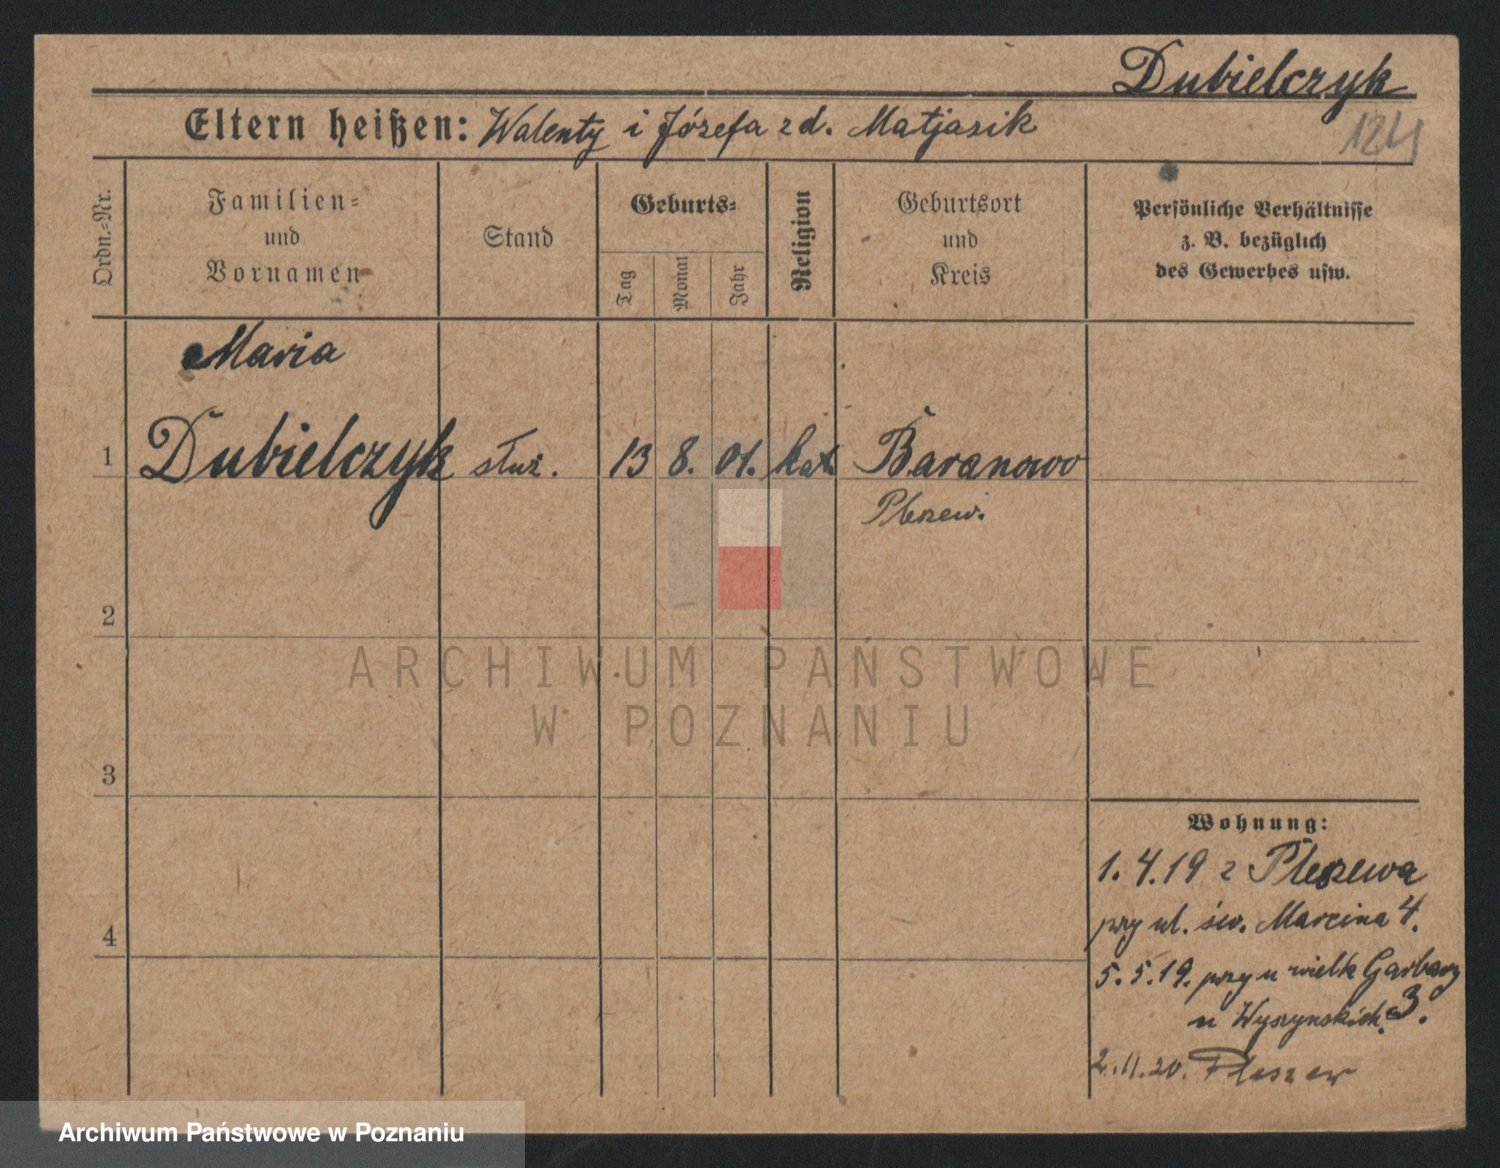 Dubielczyk
Eltern heißen: Walenty i Józefa zd. Matjasik
124
Ordn.-Nr.
Familien-
und
Vornamen
Stand
Geburts-
Tag
Monat
Jahr
Religion
Geburtsort
und
Kreis
Persönliche Verhältnisse
z. B. bezüglich
des Gewerbes usw.
Maria
1 Dubielczyk służ. 13 8. 01. kat. Baranowo
Pleszew.
2
3
4
Wohnung:
1.4.19 z Pleszewa
przy ul. św. Marcina 4.
5.5.19. przy u wielk Garbary
u Wyszynskich. 3.
2.11.20. Pleszew
ARCHIWUM PAŃSTWOWE
W POZNANIU
Archiwum Państwowe w Poznaniu